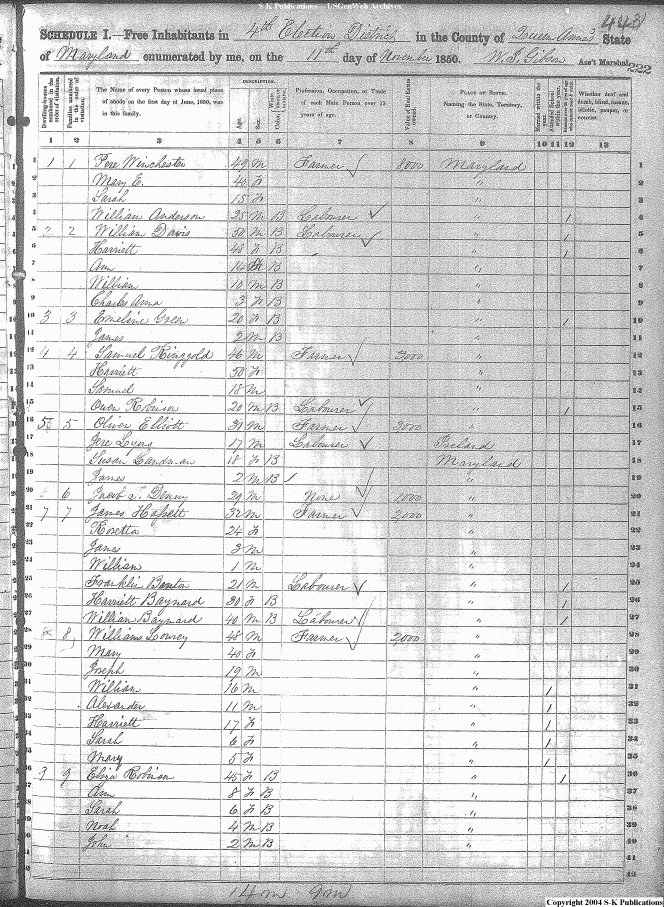 S-K Publications - USGenWeb Archives
443
SCHEDULE I.—Free Inhabitants in 4th Election District in the County of Queen Anne's State
of Maryland enumerated by me, on the 11th day of November 1850. W. J. Gibson Ass't Marshal. 222
Dwelling-houses numbered in the order of visitation. Families numbered in the order of visitation. The Name of every Person whose usual place of abode on the first day of June, 1850, was in this family. DESCRIPTION. Age. Sex. Color Profession, Occupation, or Trade of each Male Person over 15 years of age. Value of Real Estate owned. PLACE OF BIRTH. Naming the State, Territory, or Country. Married within the year. Attended School within the year. Whether deaf and dumb, blind, insane, idiotic, pauper, or convict.
1 2 3 4 5 6 7 8 9 10 11 12 13
1 1 1 Pere Winchester 49 M Farmer ✓ 8000 Maryland 1
2 Mary E. 40 F " 2
3 Sarah 15 F " 3
4 William Anderson 25 M B Labourer ✓ " / 4
5 2 2 William Davis 50 M B Labourer ✓ " / 5
6 Harriett 43 F B " / 6
7 Ann 14 B " 7
8 William 10 M B " 8
9 Charles Anna 3 F B " 9
10 3 3 Emeline Green 20 F B " / 10
11 James 2 M B " 11
12 4 4 Samuel Ringgold 46 M Farmer ✓ 3,000 " 12
13 Harriett 50 F " 13
14 Samuel 18 M " 14
15 Owen Robinson 20 M B Labourer ✓ " / 15
16 5 5 Oliver Elliott 31 M Farmer ✓ 3000 " 16
17 Jere Lyons 17 M Labourer ✓ Ireland 17
18 Susan Landman 18 F B Maryland 18
19 James 2 M B " 19
20 6 6 Jacob T. Denny 29 M None ✓ 1000 " 20
21 7 7 James Hassett 32 M Farmer ✓ 2000 " 21
22 Rosetta 24 F " 22
23 James 3 M " 23
24 William 1 M " 24
25 Franklin Benton 21 M Labourer ✓ " / 25
26 Harriett Baynard 30 F B " / 26
27 William Baynard 40 M B Labourer ✓ " / 27
28 8 8 William Lowrey 48 M Farmer ✓ 2,000 " 28
29 Mary 40 F " 29
30 Joseph 19 M " 30
31 William 16 M " / 31
32 Alexander 11 M " / 32
33 Harriett 17 F " / 33
34 Sarah 6 F " / 34
35 Mary 5 F " / 35
36 9 9 Eliza Robinson 45 F B " / 36
37 Ann 8 F B " 37
38 Sarah 6 F B " 38
39 Noah 4 M B " 39
40 John 2 M B " 40
41 41
42 42
14 m 9 m
Copyright 2004 S-K Publications